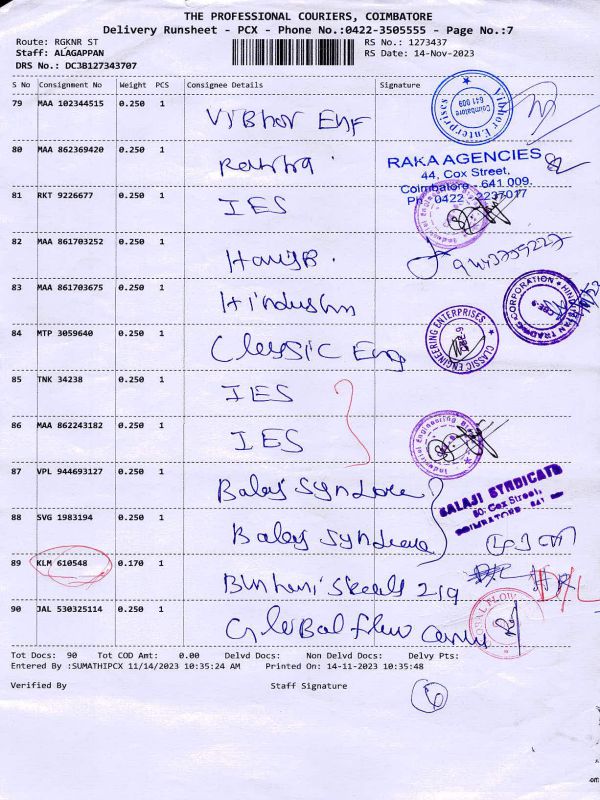 THE PROFESSIONAL COURIERS, COIMBATORE
Delivery Runsheet - PCX - Phone No.:0422-3505555 - Page No.:7
Route: RGKNR ST
RS No.: 1273437
Staff: ALAGAPPAN
RS Date: 14-Nov-2023
DRS No.: DCJB127343707
S No Consignment No Weight PCS Consignee Details Signature
79 MAA 102344515 0.250 1 Vibhor Enf
Vibhor Enterprises Coimbatore 641 009
80 MAA 862369420 0.250 1
RAKA AGENCIES
44, Cox Street,
Coimbatore - 641 009.
Ph : 0422 - 2237017
81 RKT 9226677 0.250 1 IES
82 MAA 861703252 0.250 1 Harish.
83 MAA 861703675 0.250 1
CORPORATION
84 MTP 3059640 0.250 1 Classic Eng
CLASSIC ENGINEERING ENTERPRISES
85 TNK 34238 0.250 1 IES
86 MAA 862243182 0.250 1 IES
Industrial Engineering
87 VPL 944693127 0.250 1 Balaji
BALAJI SYNDICATE
60, Cox Street,
88 SVG 1983194 0.250 1 Balaji
89 KLM 610548 0.170 1 219 D/L
90 JAL 530325114 0.250 1 Global flow
Tot Docs: 90 Tot COD Amt: 0.00 Delvd Docs: Non Delvd Docs: Delvy Pts:
Entered By :SUMATHIPCX 11/14/2023 10:35:24 AM Printed On: 14-11-2023 10:35:48
Verified By Staff Signature
6